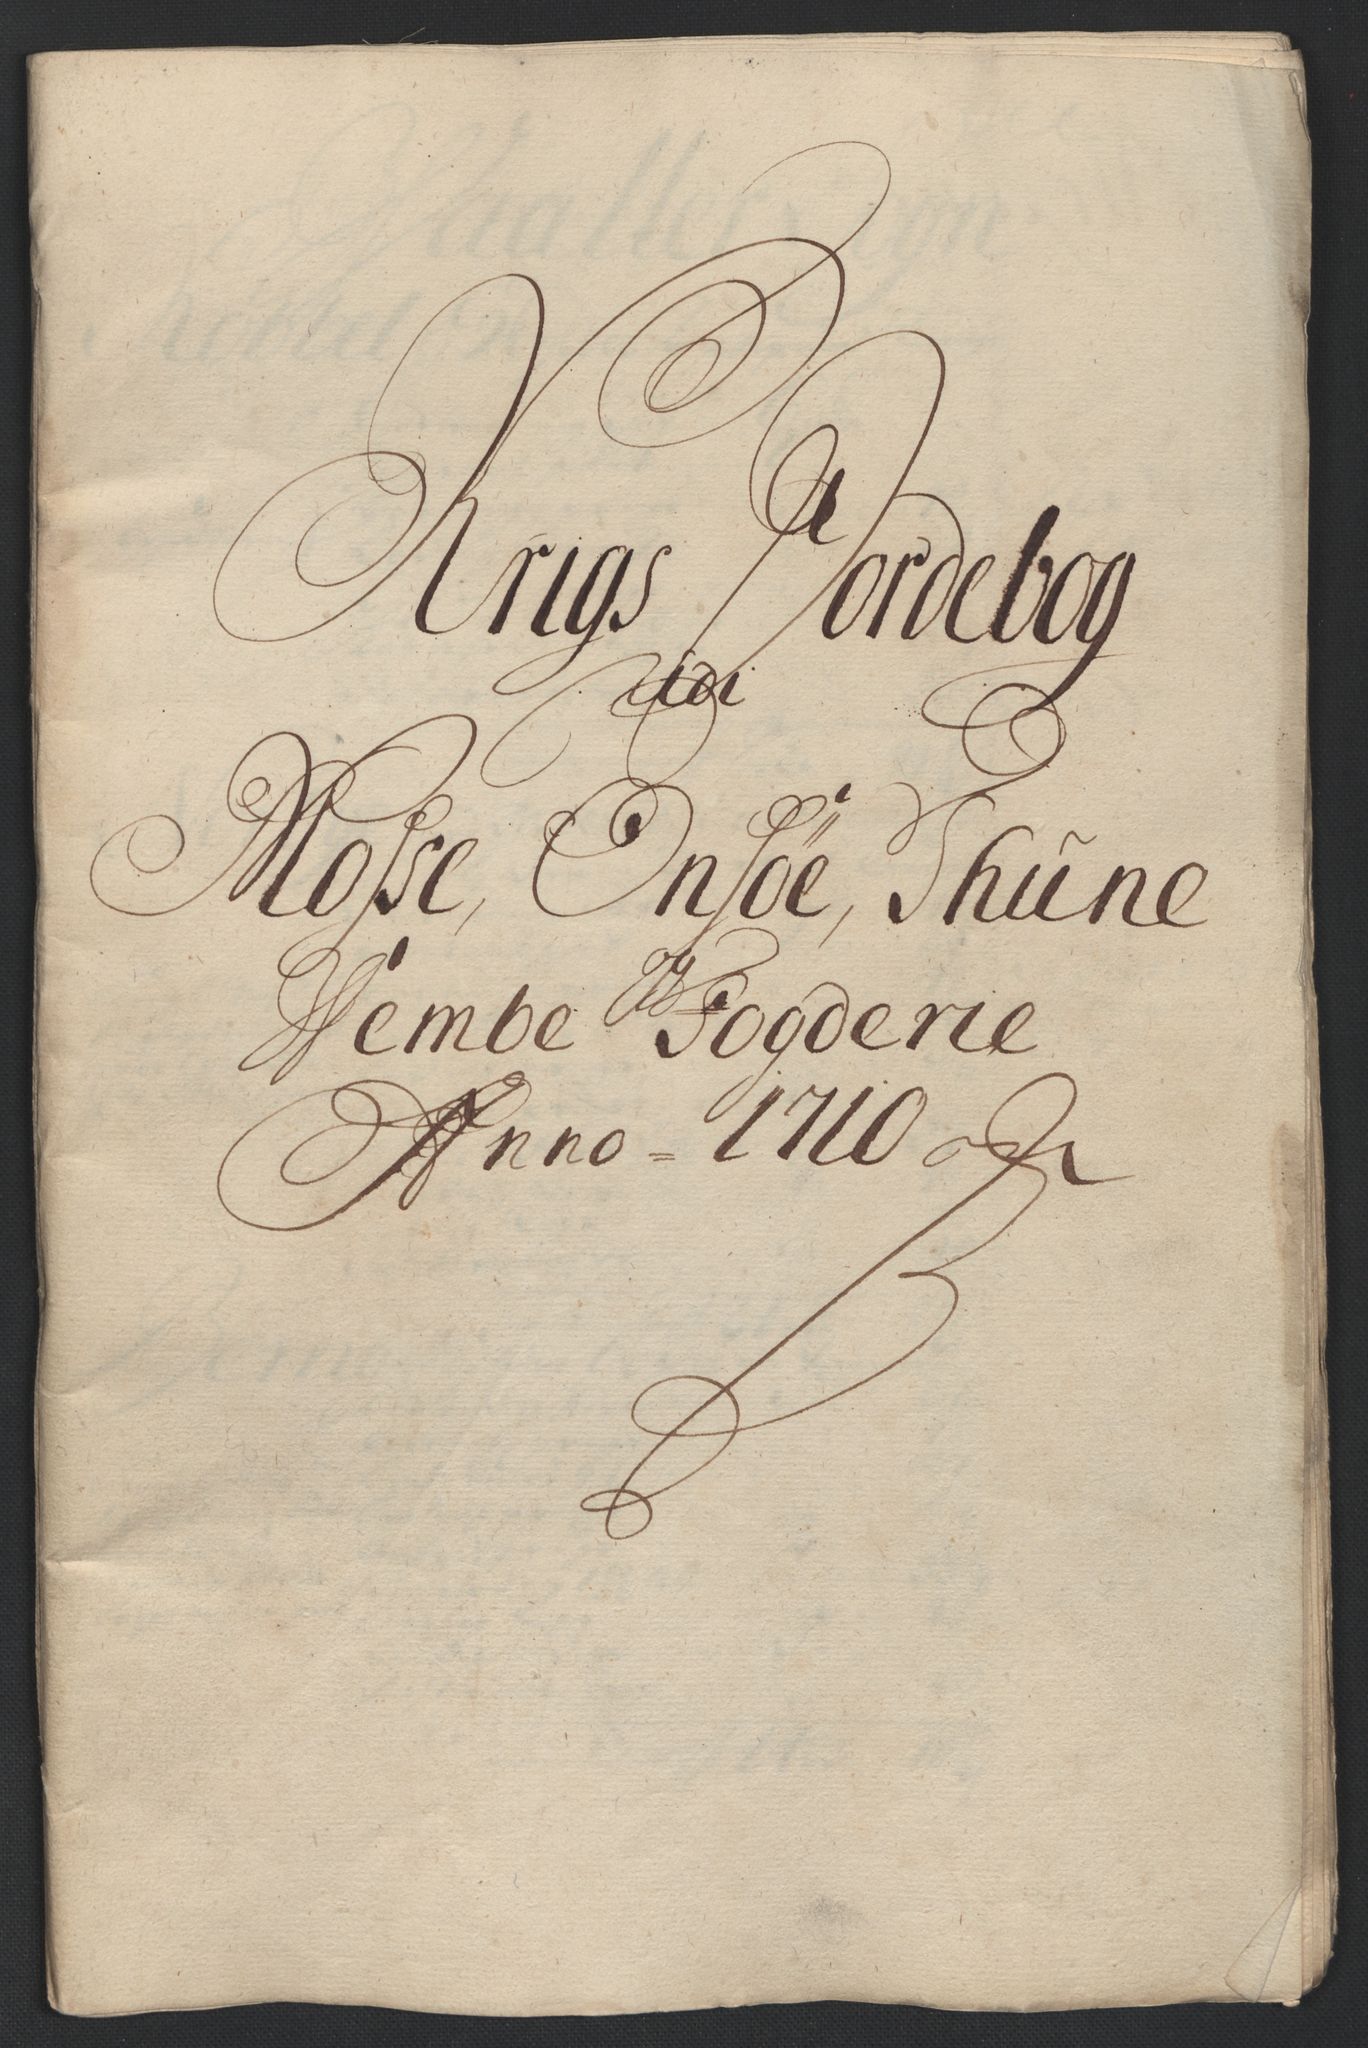 Krigs Jordebog
udi
Mosse, Onsöe, Thüne
og
Wembe Fogderie
Anno = 1710